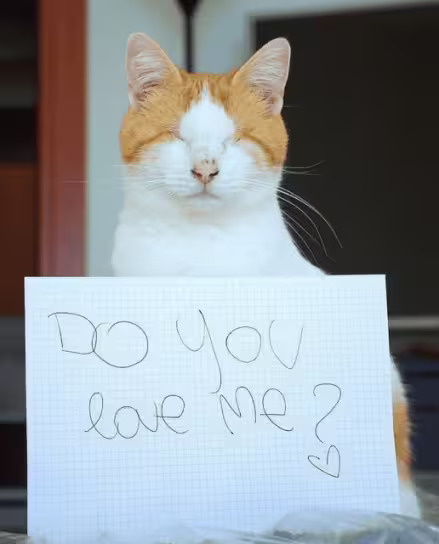 Do you
love me?